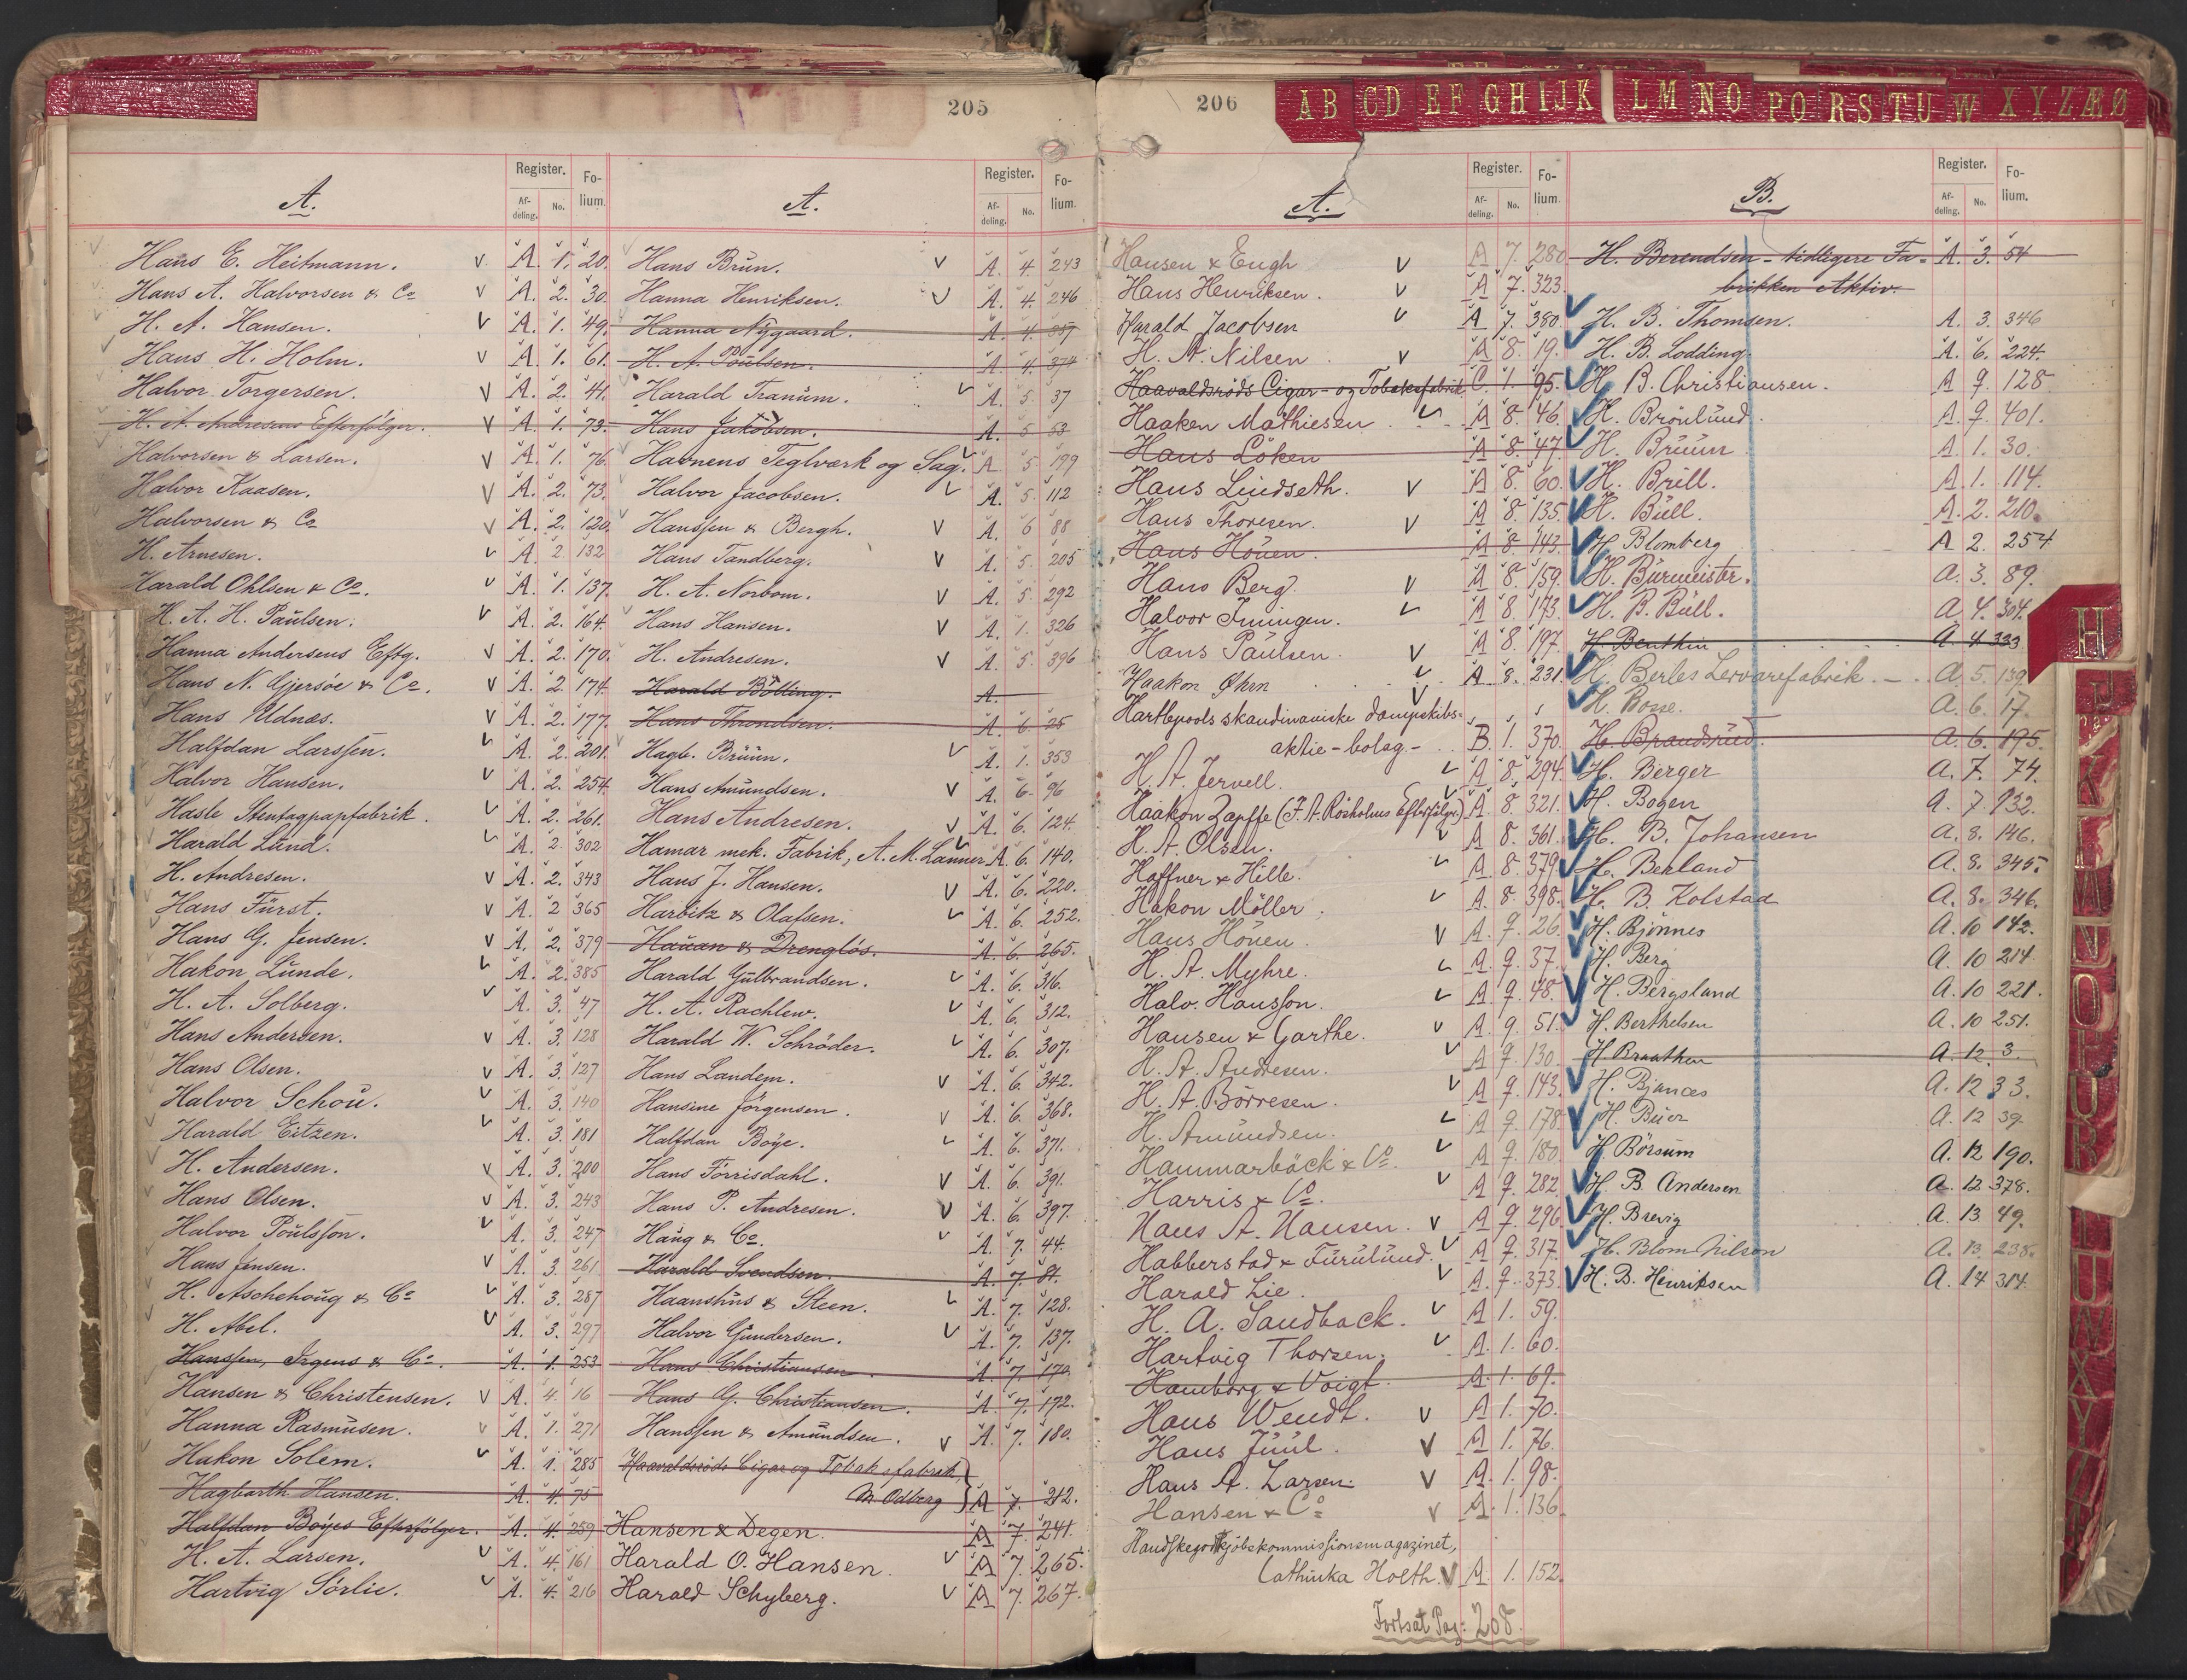 205
A.
Register.
Af-deling.
No.
Fo-lium.
Hans E. Heitmann. V A. 1. 20.
Hans A. Halvorsen & Co V A. 2. 30.
H. A. Hansen. V A. 1. 49.
Hans H. Holm. V A. 1. 61.
Halvor Torgersen. V A. 2. 41.
H. A. Andresens Efterfölger. V A. 1. 73.
Halvorsen & Larsen. V A. 1. 76.
Halvor Kaasen. V A. 2. 73.
Halvorsen & Co V A. 2. 120.
H. Arnesen. V A. 2. 132
Harald Ohlsen & Co. V A. 1. 137.
H. A. H. Paulsen. V A. 2. 164.
Hanna Andersens Eftg. V A. 2. 170.
Hans N. Gjersöe & Co. V A. 2. 174.
Hans Udnæs. V A. 2. 177.
Halfdan Larssen. V A. 2. 201.
Halvor Hansen. V A. 2. 254.
Hasle Stentagpapfabrik. V A. 2. 261.
Harald Lund. V A. 2. 302
H. Andresen. V A. 2. 343
Hans Fürst. V A. 2 365
Hans G. Jensen. V A. 2. 379
Hakon Lunde. V A. 2. 385
H. A. Solberg. V A. 3. 47
Hans Andersen. V A. 3. 128
Hans Olsen. V A. 3. 127
Halvor Schou. V A. 3. 140
Harald Eitzen. V A. 3. 181
H. Andersen. V A. 3. 200
Hans Olsen. V A. 3. 243
Halvor Poulsson. V A. 3. 247
Hans Jensen. V A. 3. 261
H. Aschehoug & Co V A. 3. 287
H. Abel. V A. 3. 297
Hanssen, Irgens & Co. A. 1. 253
Hansen & Christensen. V A. 4. 16
Hanna Rasmusen. V A. 1. 271
Hakon Solem. V A. 1. 285
Hagbarth Hansen. A. 4. 75
Halfdan Boyes Efterfölger. A. 4. 259
H. A. Larsen. V A. 4. 161
Hartvig Sörlie. V A. 4. 216
A.
Register.
Af-deling.
No.
Fo-lium.
Hans Brun. V A. 4. 243
Hanna Henriksen. V A. 4. 246
Hanna Nygaard. A. 4. 357
H. A. Poulsen. A. 4. 374
Harald Tranum. V A. 5. 37
Hans Jakobsen. A. 5 53
Havnens Teglværk og Sag. V A 5. 199
Halvor Jacobsen. V A. 5. 112
Hanssen & Bergh. V A. 6 88
Hans Tandberg. V A. 5. 205
H. A. Norbom. V A. 5 292
Hans Hansen. V A. 1. 326
H. Andresen. V A. 5. 396
Harald Bölling. A.
Hans Throndsen. A. 6. 25
Hagb. Bruun. V A. 1. 353
Hans Amundsen. V A. 6. 96
Hans Andresen. V A. 6. 124.
Hamar mek. Fabrik, A. M. Lanner. V A. 6. 140.
Hans J. Hansen. V A. 6. 220.
Harbitz & Olafsen. V A. 6. 252.
Hauan & Drenglös. A. 6. 265.
Harald Gulbrandsen. V A. 6. 316.
H. A. Rachlew. V A. 6. 312.
Harald W. Schröder. V A. 6. 307.
Hans Landem. V A. 6. 342.
Hansine Jörgensen. V A. 6. 368.
Halfdan Boye. V A. 6. 371.
Hans Torrisdahl. V A. 6. 391.
Hans P. Andresen. V A. 6. 397.
Haug & Co. V A. 7. 44.
Harald Svendsen. A. 7. 81.
Haanshus & Steen. V A. 7. 128.
Halvor Gundersen. V A. 7. 137.
Hans Christiansen. A. 7. 170.
Hans G. Christiansen. A. 7. 172.
Hanssen & Amundsen. V A. 7. 180.
Haavaldsröds Cigar og Tobaksfabrik,
M. Odberg A 7. 212.
Hansen & Degen. A 7. 241.
Harald O. Hansen V A 7. 265.
Harald Schyberg. V A 7. 267.
206
AB CD EF GH IJK LM NO PQ RS TU W XYZÆØ
A.
Register.
Af-deling.
No.
Fo-lium
Hansen & Engh V A 7. 280
Hans Henriksen. V A 7. 323.
Harald Jacobsen V A 7. 380.
H. A. Nilsen. V A 8. 19.
Haavaldsröds Cigar- og Tobaksfabrik C. 1. 95.
Haaken Mathiesen. V A 8. 46.
Hans Löken A 8. 47
Hans Lindseth. V A 8. 60.
Hans Thoresen. V A 8. 135.
Hans Houen. A 8. 143.
Hans Berg. V A 8. 159.
Halvor Iningen. V A 8. 173.
Hans Paulsen. V A 8. 197.
Haakon Øhrn V A 8. 231.
Hartlepools skandinaviske dampskibs-
aktie-bolag. - B. 1. 370.
H. A. Jervell. V A 8. 294.
Haakon Zapffe (F. A. Rosholms Efterfölger) V A 8. 321.
H. A. Olsen. V A 8. 361.
Haffner & Hille. V A 8. 379
Hakon Möller. V A. 8. 398.
Hans Houen. V A. 9. 26.
H. A. Myhre. V A. 9. 37.
Halv. Hansson. V A 9. 48.
Hansen & Garthe. V A 9. 51.
H. A. Andresen. V A 9. 130.
H. A. Börresen. V A 9. 143.
H. Amundsen. V A 9. 178.
Hammarbäck & Co. V A 9. 180.
Harris & Co. V A 9. 282.
Hans A. Hansen. V A 9. 296
Habberstad & Furulund. V A 9. 317.
Harald Lie. V A. 9. 373.
H. A. Sandback. V A 1. 59.
Hartvig Thorsen. V A. 1. 60.
Hamborg & Voigt. A. 1. 69.
Hans Wendt. V A 1. 70.
Hans Juul. V A 1. 76.
Hans A. Larsen. V A. 1. 98.
Hansen & Co V A. 1. 136.
Handskegodtkjöbskommissionsmagazinet,
Cathinka Holth. V A. 1. 152.
Fortsat Pag: 208.
B.
Register.
Af-deling.
No.
Fo-lium.
H. Berendsen - tidligere Fa- A. 3. 54
brikken Aktiv.
H. B. Thomsen. A. 3. 346
H. B. Lodding. A. 6. 224.
H. B. Christiansen. A 9. 128
H. Brönlund. A. 9. 401.
H. Bruun A. 1. 30.
H. Brill. A. 1. 114.
H. Bull. A. 2. 210.
H. Blomberg A 2. 254
H. Burmeister. A. 3. 89.
H. B. Bull. A 4. 304.
H Benthin A. 4 333
H. Berles Lervarefabrik. A 5. 139.
H. Bosse. A. 6. 17.
H. Brandsrud. A. 6. 195.
H. Berger A. 7. 74.
H. Bogen A. 7. 132.
H. B. Johansen A. 8. 146.
H. Berland A. 8. 345.
H. B. Kolstad A. 8. 346.
H. Bjönnes A. 10 142.
H. Berg A. 10 214.
H. Bergsland A. 10 221.
H. Berthelsen A. 10 251.
H Braathen A. 12 3.
H. Bjances A. 12 33.
H. Buer A. 12 39.
H. Börsum A. 12 190.
H. B. Andersen A. 12 378.
H. Brevig A. 13 49.
H. Blom Nilson A. 13 238.
H. B. Henriksen A. 14 314.
H